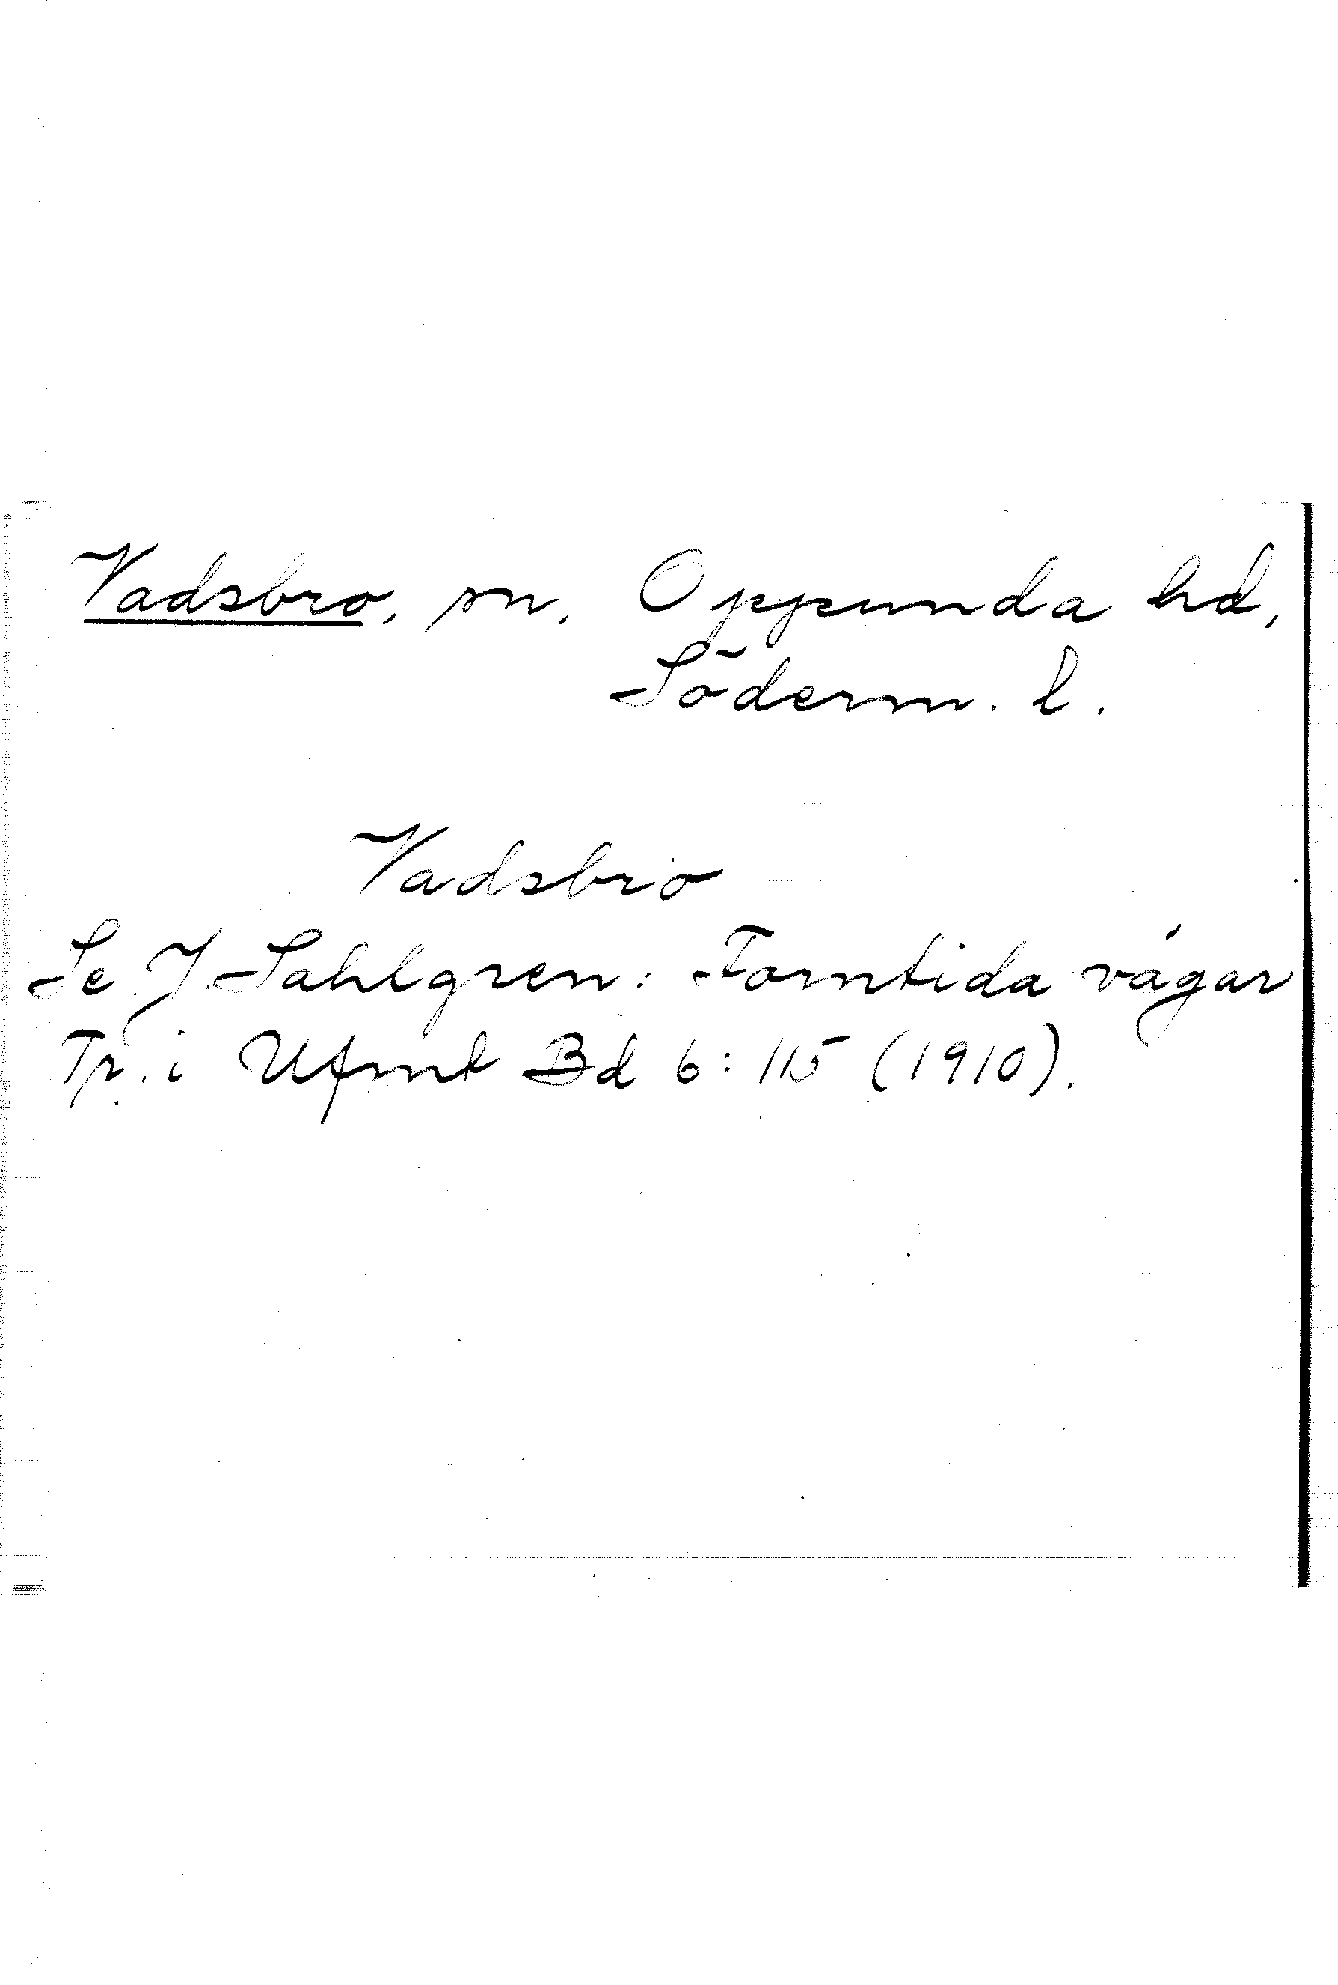 Vadsbro, sn, Oppunda hd,
Söderm. l.
Vadsbro
Se J Sahlgren: Forntida vägar
Tr. i Ufmt Bd 6: 115 (1910).